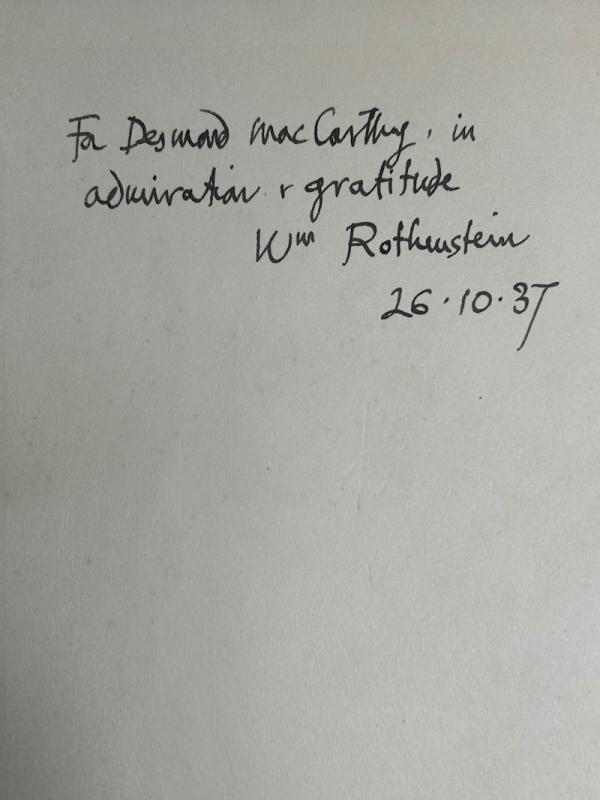 For Desmond MacCarthy, in
admiration & gratitude
Wm Rothenstein
26.10.37